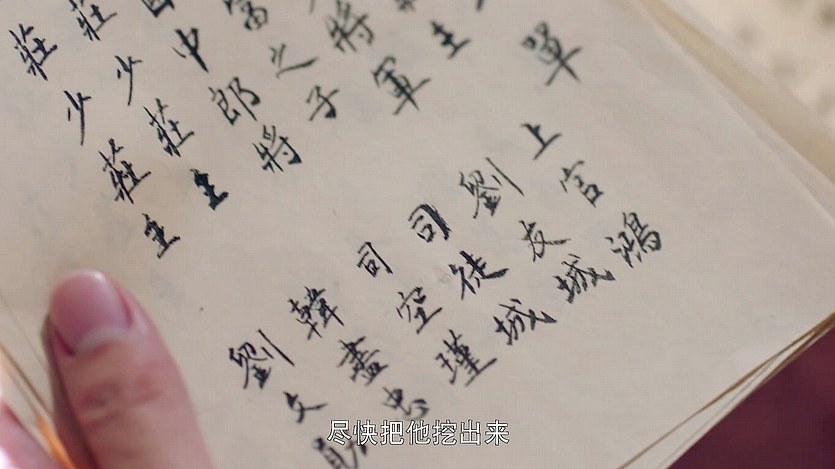 單
主
將軍
富之子
中郎將
莊少莊主
莊少莊主
上官鴻
劉友城
司徒城
司空瑾
韓盡忠
劉文
尽快把他挖出来